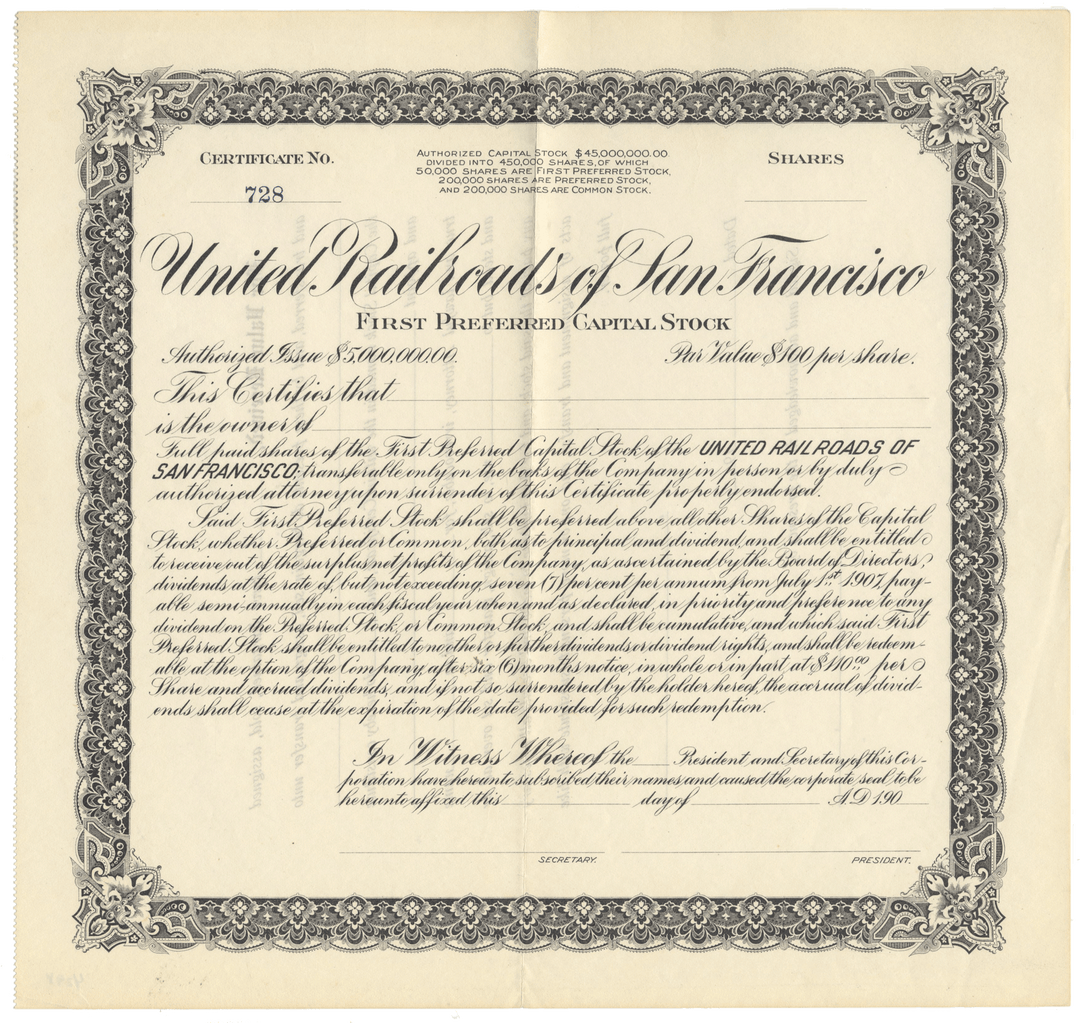 CERTIFICATE NO.
728
AUTHORIZED CAPITAL STOCK $45,000,000.00
DIVIDED INTO 450,000 SHARES, OF WHICH
50,000 SHARES ARE FIRST PREFERRED STOCK,
200,000 SHARES ARE PREFERRED STOCK,
AND 200,000 SHARES ARE COMMON STOCK.
SHARES
United Railroads of San Francisco
FIRST PREFERRED CAPITAL STOCK
Authorized Issue $5,000,000.00. Par Value $100 per share.
This Certifies that
is the owner of
Full paid shares of the First Preferred Capital Stock of the UNITED RAILROADS OF
SAN FRANCISCO; transferable only on the books of the Company in person or by duly
authorized attorney upon surrender of this Certificate properly endorsed.
Said First Preferred Stock shall be preferred above all other Shares of the Capital
Stock, whether Preferred or Common, both as to principal and dividend, and shall be entitled
to receive out of the surplus net profits of the Company, as ascertained by the Board of Directors,
dividends at the rate if, but not exceeding, seven (7) per cent per annum from July 1st 1907, pay-
able semi-annually in each fiscal year when and as declared, in priority and preference to any
dividend on the Preferred Stock, or Common Stock, and shall be cumulative, and which said First
Preferred Stock shall be entitled to no other or further dividends or dividend rights, and shall be redeem-
able at the option of the Company, after six (6) months notice, in whole or in part at $110.00 per
Share and accrued dividends, and if not so surrendered by the holder hereof, the accrual of divid-
ends shall cease at the expiration of the date provided for such redemption.
In Witness Whereof the President and Secretary of this Cor-
poration have hereunto subscribed their names and caused the corporate seal to be
hereunto affixed this day of A.D. 190
SECRETARY. PRESIDENT.